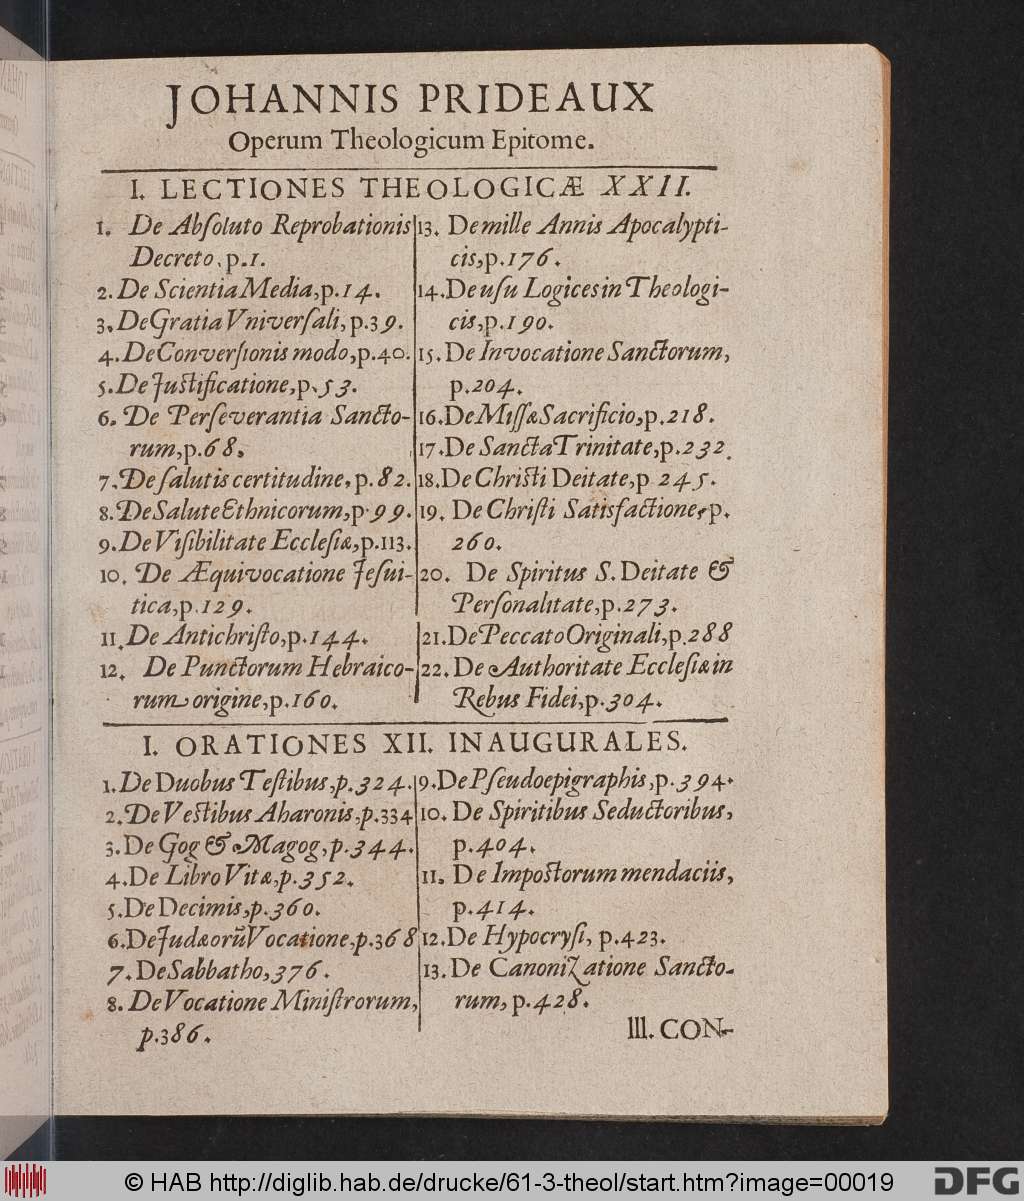 JOHANNIS PRIDEAUX
Operum Theologicum Epitome.
I. LECTIONES THEOLOGICÆ XXII.
1. De Abſoluto Reprobationis
Decreto, p.1.
2. De Scientia Media, p.14.
3. De Gratia Vniverſali, p.39.
4. De Converſionis modo, p.40.
5. De Juſtificatione, p.53.
6. De Perſeverantia Sancto-
rum, p.68.
7. De ſalutis certitudine, p.82.
8. De Salute Ethnicorum, p.99.
9. De Viſibilitate Eccleſiæ, p.113.
10. De Æquivocatione Jeſui-
tica, p.129.
11. De Antichriſto, p.144.
12. De Punctorum Hebraico-
rum origine, p.160.
13. De mille Annis Apocalypti-
cis, p.176.
14. De uſu Logices in Theologi-
cis, p.190.
15. De Invocatione Sanctorum,
p.204.
16. De Miſſæ Sacrificio, p.218.
17. De Sancta Trinitate, p.232.
18. De Chriſti Deitate, p 245.
19. De Chriſti Satisfactione, p.
260.
20. De Spiritus S. Deitate &
Perſonalitate, p.273.
21. De Peccato Originali, p.288
22. De Authoritate Eccleſiæ in
Rebus Fidei, p.304.
I. ORATIONES XII. INAUGURALES.
1. De Duobus Teſtibus, p.324.
2. De Veſtibus Aharonis, p.334
3. De Gog & Magog, p.344.
4. De Libro Vitæ, p.352.
5. De Decimis, p.360.
6. De Judæorũ Vocatione, p.368
7. De Sabbatho, 376.
8. De Vocatione Miniſtrorum,
p.386.
9. De Pſeudoepigraphis, p.394.
10. De Spiritibus Seductoribus,
p.404.
11. De Impoſtorum mendaciis,
p.414.
12. De Hypocryſi, p.423.
13. De Canonizatione Sancto-
rum, p.428.
III. CON-
© HAB http://diglib.hab.de/drucke/61-3-theol/start.htm?image=00019
DFG